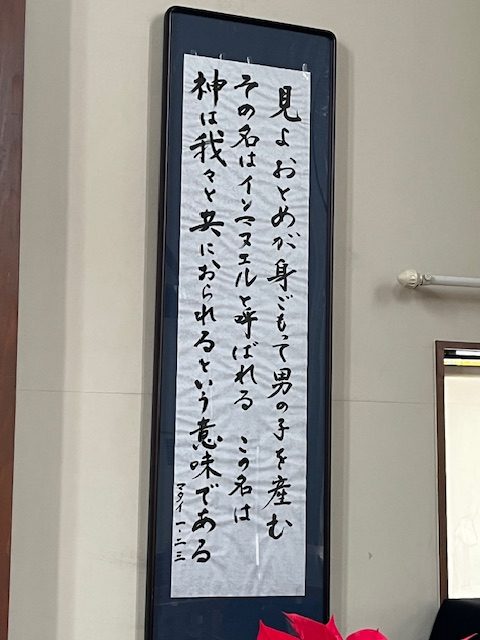 見よ おとめが身ごもって男の子を産む
その名はインマヌエルと呼ばれる この名は
神は我々と共におられるという意味である
マタイ 一・二三